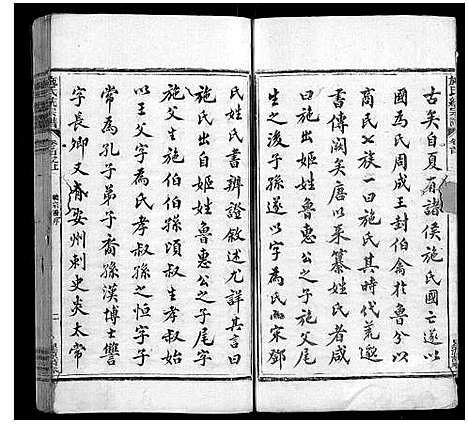 施氏統宗譜
古矣自夏有諸侯施氏國亡遂以
國為氏周成王封伯禽於魯分以
商民七族一曰施氏其時代荒邈
書傳闕矣唐以來纂姓氏者咸
曰施氏出自姬姓魯惠公之子施父
生之後子孫遂以字為氏而宋鄧
氏姓氏書辨證敘述尤詳其言曰
施氏出自姬姓魯惠公之子尾字
施父生施伯伯孫頃叔生孝叔始
以王父字為氏孝叔孫之恒字子
常為孔子弟子裔孫漢博士讐
字長卿又有安州刺史炎太常
施氏統宗譜